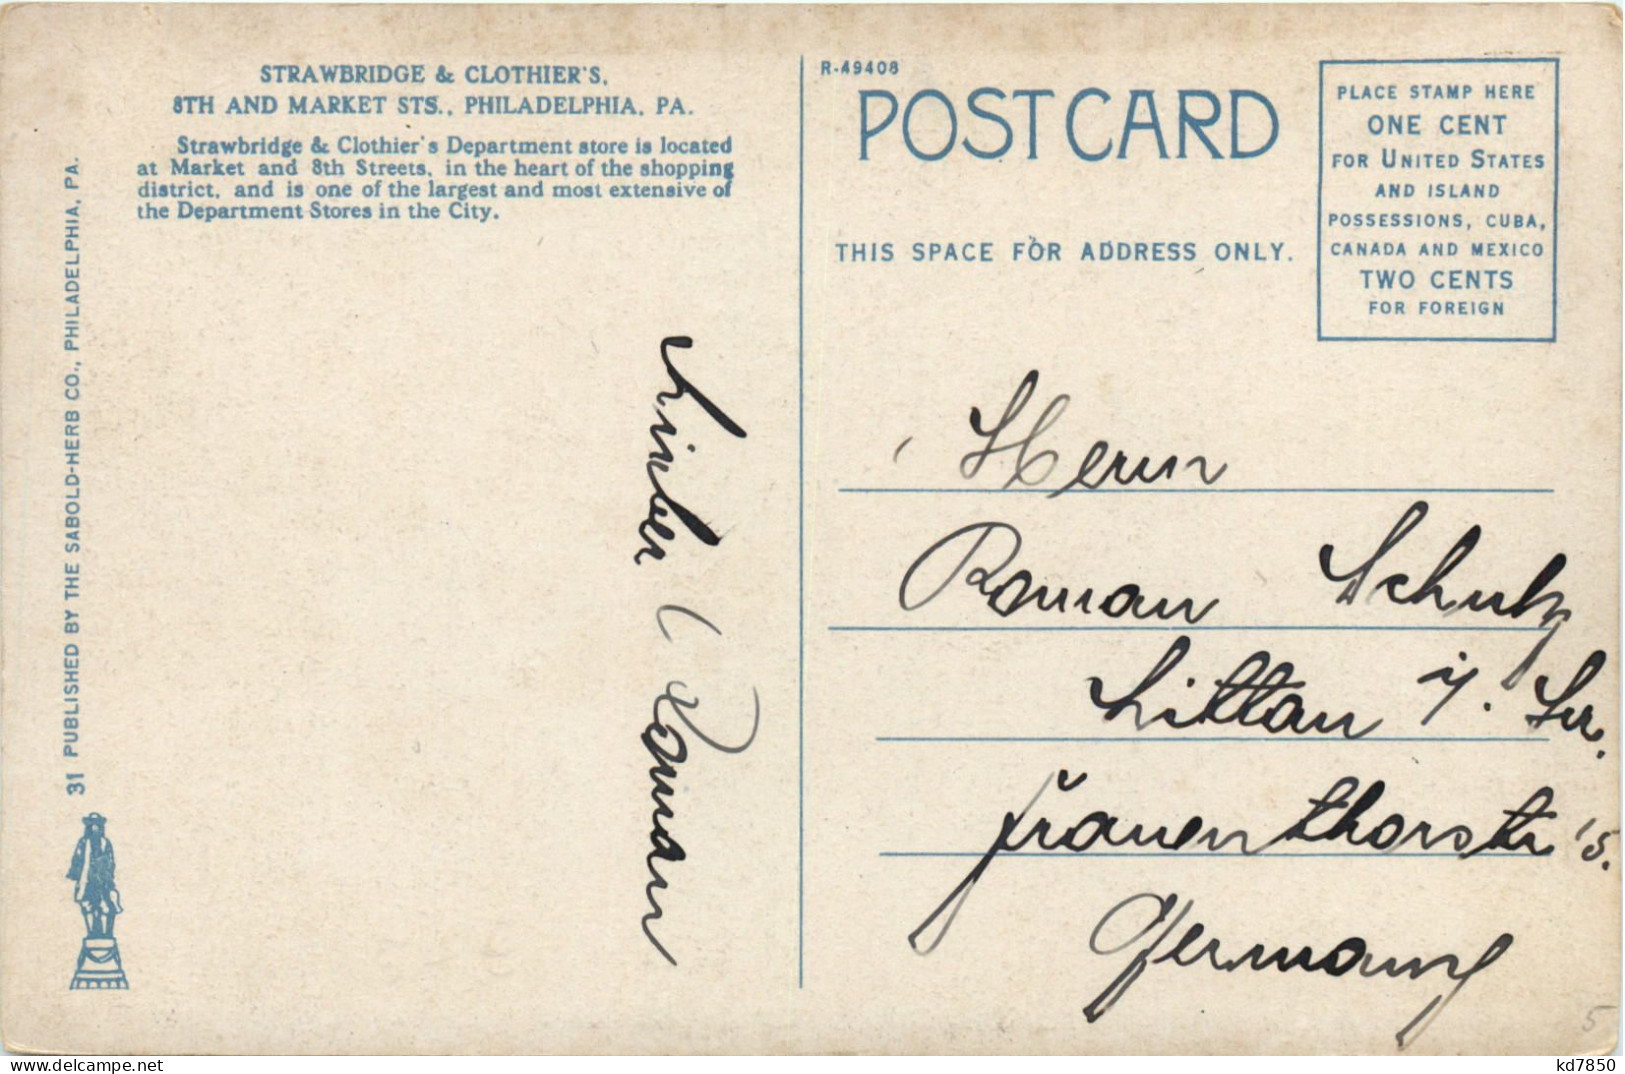 STRAWBRIDGE & CLOTHIER'S,
8TH AND MARKET STS., PHILADELPHIA, PA.
Strawbridge & Clothier's Department store is located
at Market and 8th Streets, in the heart of the shopping
district, and is one of the largest and most extensive of
the Department Stores in the City.
31 PUBLISHED BY THE SABOLD-HERB CO., PHILADELPHIA, PA.
Lieber Roman
R-49408
POST CARD
THIS SPACE FOR ADDRESS ONLY.
PLACE STAMP HERE
ONE CENT
FOR UNITED STATES
AND ISLAND
POSSESSIONS, CUBA,
CANADA AND MEXICO
TWO CENTS
FOR FOREIGN
Herrn
Roman Schulz
Zittau i. Sa.
Frauenthorstr 15.
Germany
5
kd7850